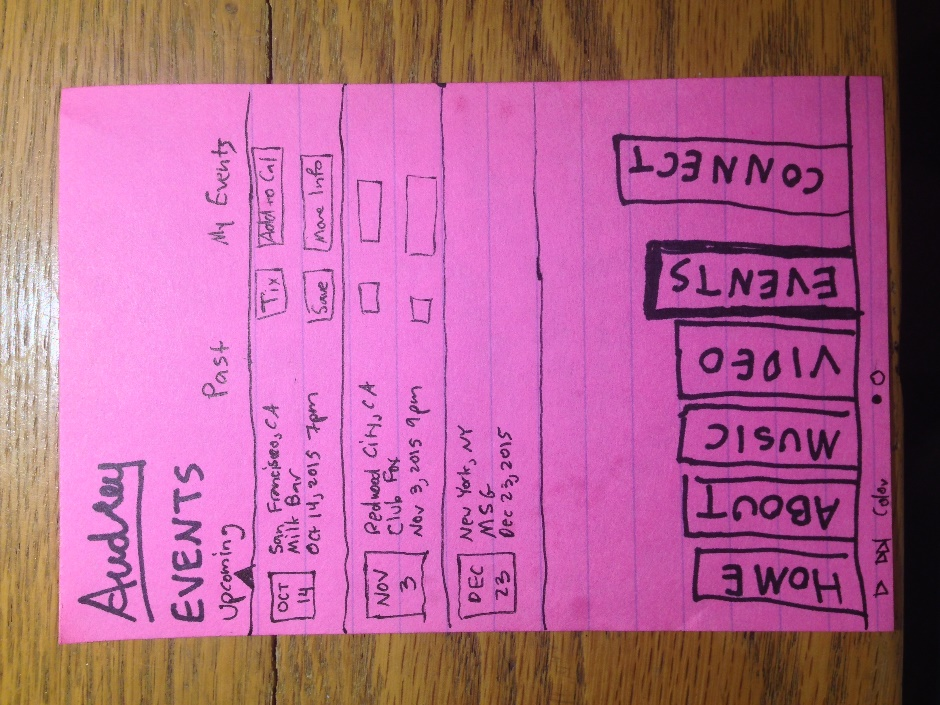 Audrey
EVENTS
Upcoming Past My Events
OCT 14
San Francisco, CA
Milk Bar
Oct 14, 2015 7pm
Tix Add to Cal
Save More Info
NOV 3
Redwood City, CA
Club Fox
Nov 3, 2015 9pm
DEC 23
New York, NY
MSG
Dec 23, 2015
HOME
ABOUT
MUSIC
VIDEO
EVENTS
CONNECT
Color